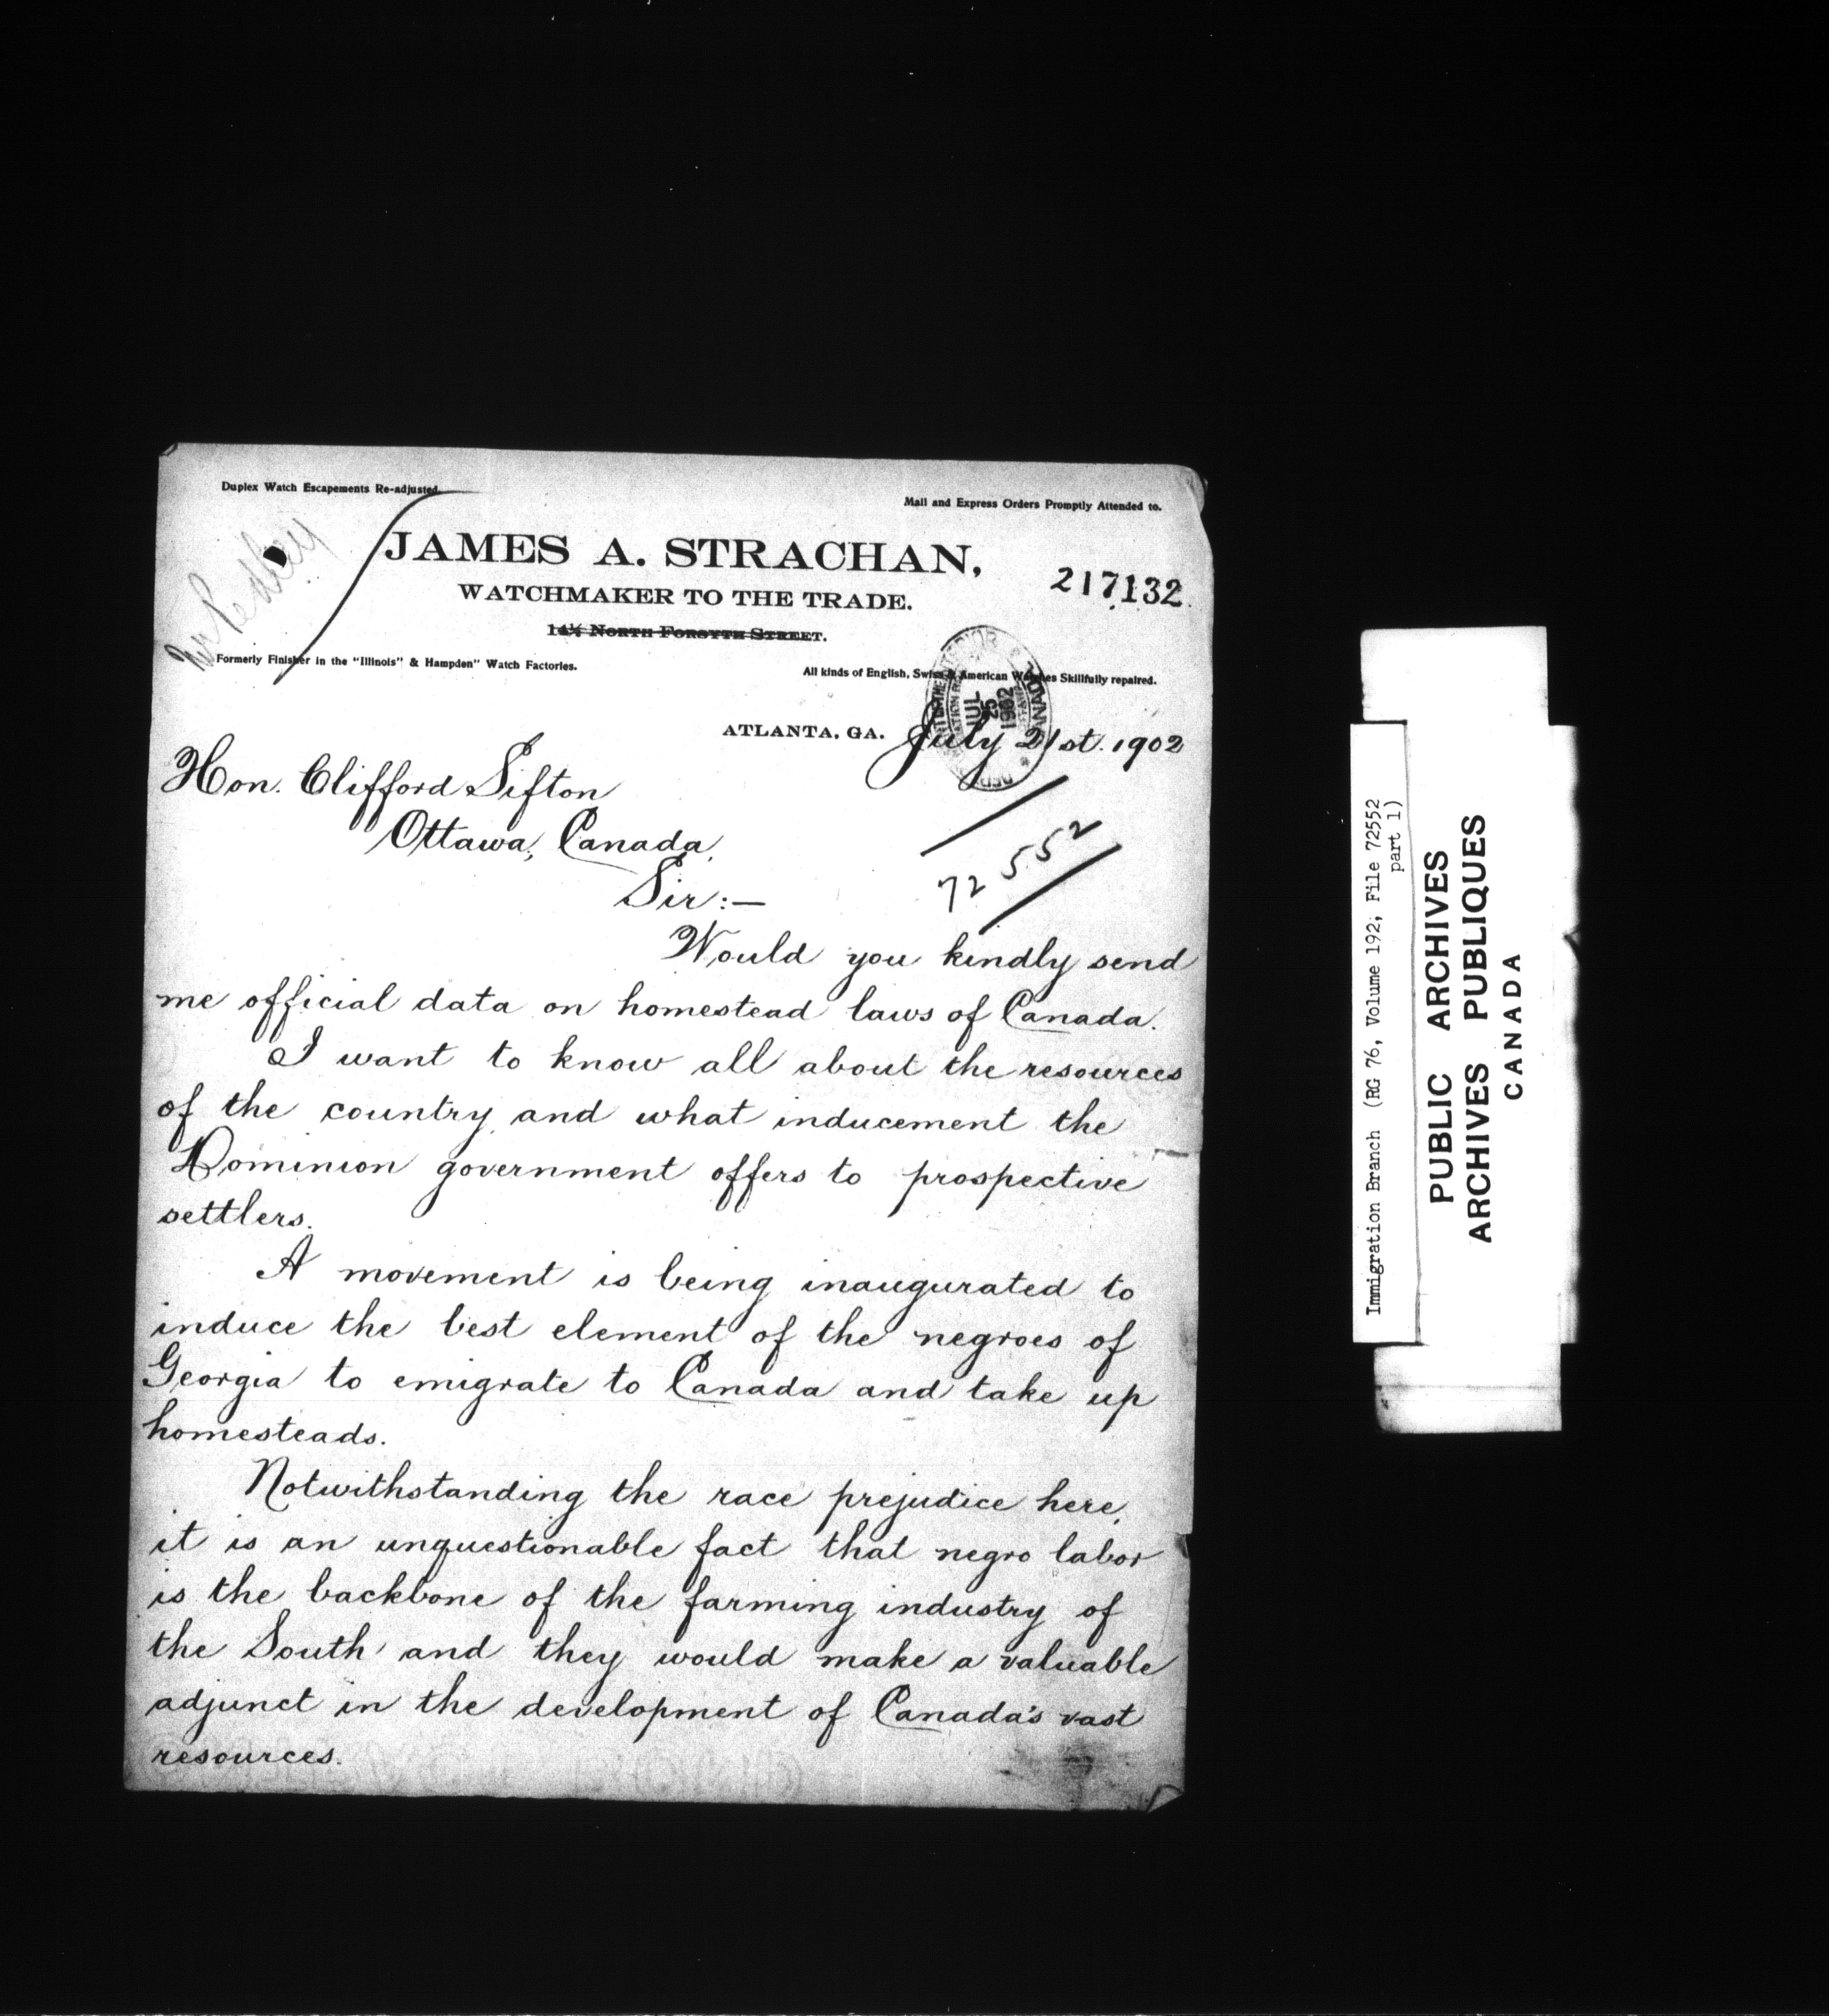 Duplex Watch Escapements Re-adjusted.
Mail and Express Orders Promptly Attended to.
JAMES A. STRACHAN,
217132
WATCHMAKER TO THE TRADE.
14½ NORTH FORSYTH STREET.
Formerly Finisher in the "Illinois" & Hampden" Watch Factories.
All kinds of English, Swiss & American Watches Skillfully repaired.
JUL
25
1902
CANADA
ATLANTA, GA. July 21st. 1902
Hon. Clifford Sifton
Ottawa, Canada.
72552
Sir:—
Would you kindly send
me official data on homestead laws of Canada.
I want to know all about the resources
of the country, and what inducement the
Dominion government offers to prospective
settlers.
A movement is being inaugurated to
induce the best element of the negroes of
Georgia to emigrate to Canada and take up
homesteads.
Notwithstanding the race prejudice here,
it is an unquestionable fact that negro labor
is the backbone of the farming industry of
the South and they would make a valuable
adjunct in the development of Canada's vast
resources.
Immigration Branch (RG 76, Volume 192, File 72552
part 1)
PUBLIC ARCHIVES
ARCHIVES PUBLIQUES
CANADA